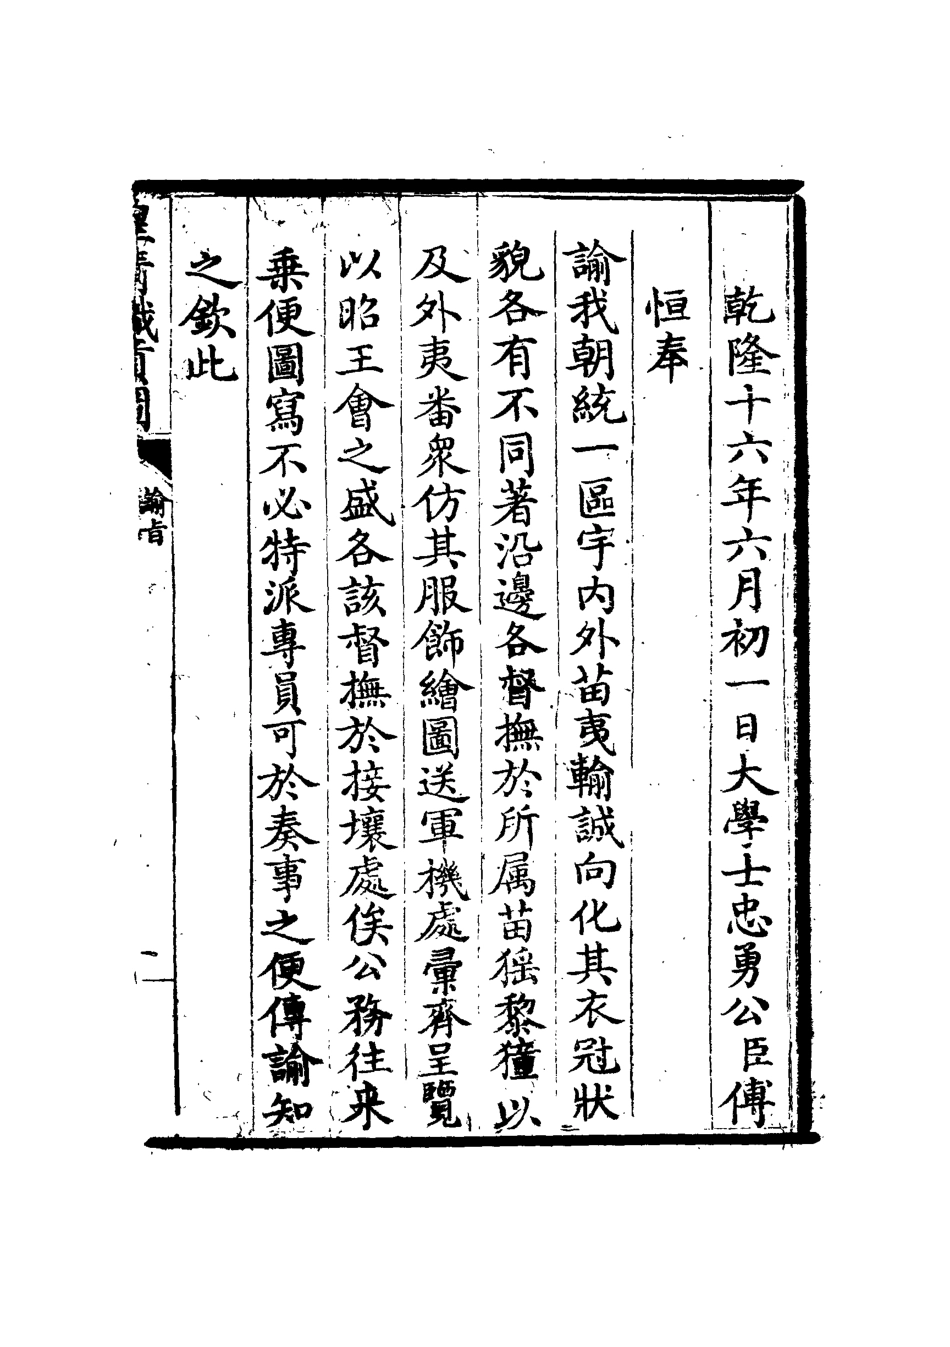 乾隆十六年六月初一日大學士忠勇公臣傅
恒奉
諭我朝統一區宇內外苗夷輸誠向化其衣冠狀
貌各有不同著沿邊各督撫於所属苗猺黎獞以
及外夷番衆仿其服飾繪圖送軍機處彙齊呈覽
以昭王會之盛各該督撫於接壤處俟公務往来
乗便圖寫不必特派專員可於奏事之便傳諭知
之欽此
皇清職貢圖
諭旨
二